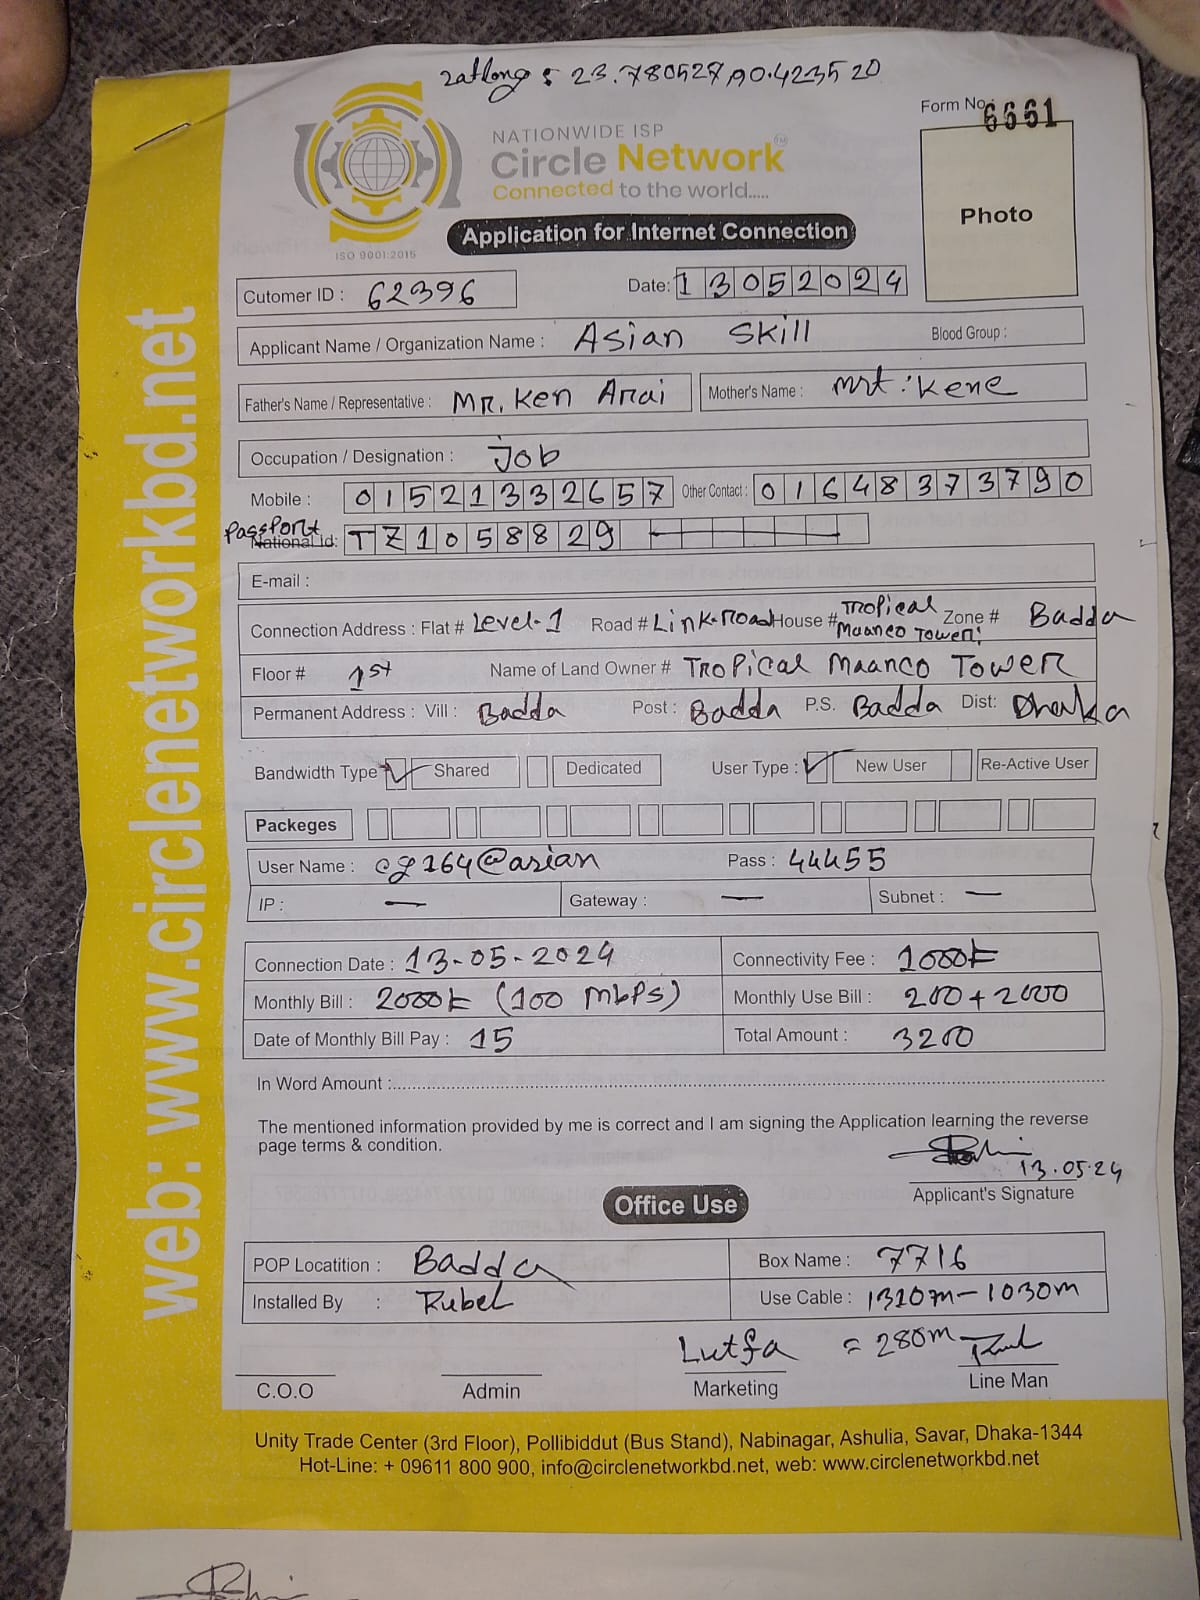 Latlong : 23.780527,90.423520
Form No: 6661
NATIONWIDE ISP
Circle Network™
Connected to the world.....
ISO 9001:2015
Photo
Application for Internet Connection
Cutomer ID : 62396 Date: 13052024
Applicant Name / Organization Name : Asian Skill Blood Group :
Father's Name / Representative : Mr. Ken Arai Mother's Name : Mrt : Kene
Occupation / Designation : Job
Mobile : 01521332657 Other Contact : 01648373790
Passport
National Id: TZ1058829
E-mail :
Connection Address : Flat # Level-1 Road # Link-Road House # Tropical Maanco Tower; Zone # Badda
Floor # 1st Name of Land Owner # Tropical Maanco Tower
Permanent Address : Vill : Badda Post : Badda P.S. Badda Dist: Dhaka
Bandwidth Type Shared Dedicated User Type : New User Re-Active User
Packeges
User Name : cg164@asian Pass : 44455
IP : — Gateway : — Subnet : —
Connection Date : 13-05-2024 Connectivity Fee : 1000৳
Monthly Bill : 2000৳ (100 Mbps) Monthly Use Bill : 200+2000
Date of Monthly Bill Pay : 15 Total Amount : 3200
In Word Amount :
The mentioned information provided by me is correct and I am signing the Application learning the reverse
page terms & condition.
13.05.24
Applicant's Signature
Office Use
POP Locatition : Badda Box Name : 7716
Installed By : Rubel Use Cable : 1310m-1030m
Lutfa = 280m
C.O.O Admin Marketing Line Man
Unity Trade Center (3rd Floor), Pollibiddut (Bus Stand), Nabinagar, Ashulia, Savar, Dhaka-1344
Hot-Line: + 09611 800 900, info@circlenetworkbd.net, web: www.circlenetworkbd.net
web: www.circlenetworkbd.net